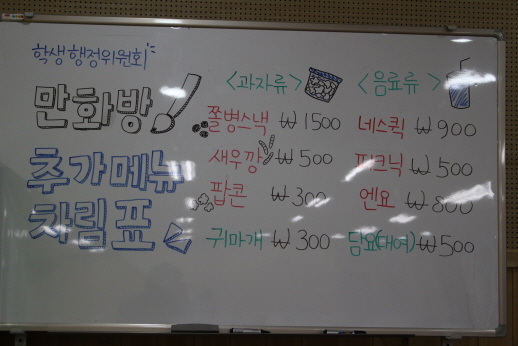 학생행정위원회
만화방
추가메뉴
차림표
<과자류> <음료류>
쫄병스낵 ₩1500 네스퀵 ₩900
새우깡 ₩500 피크닉 ₩500
팝콘 ₩300 엔요 ₩800
귀마개 ₩300 담요(대여) ₩500